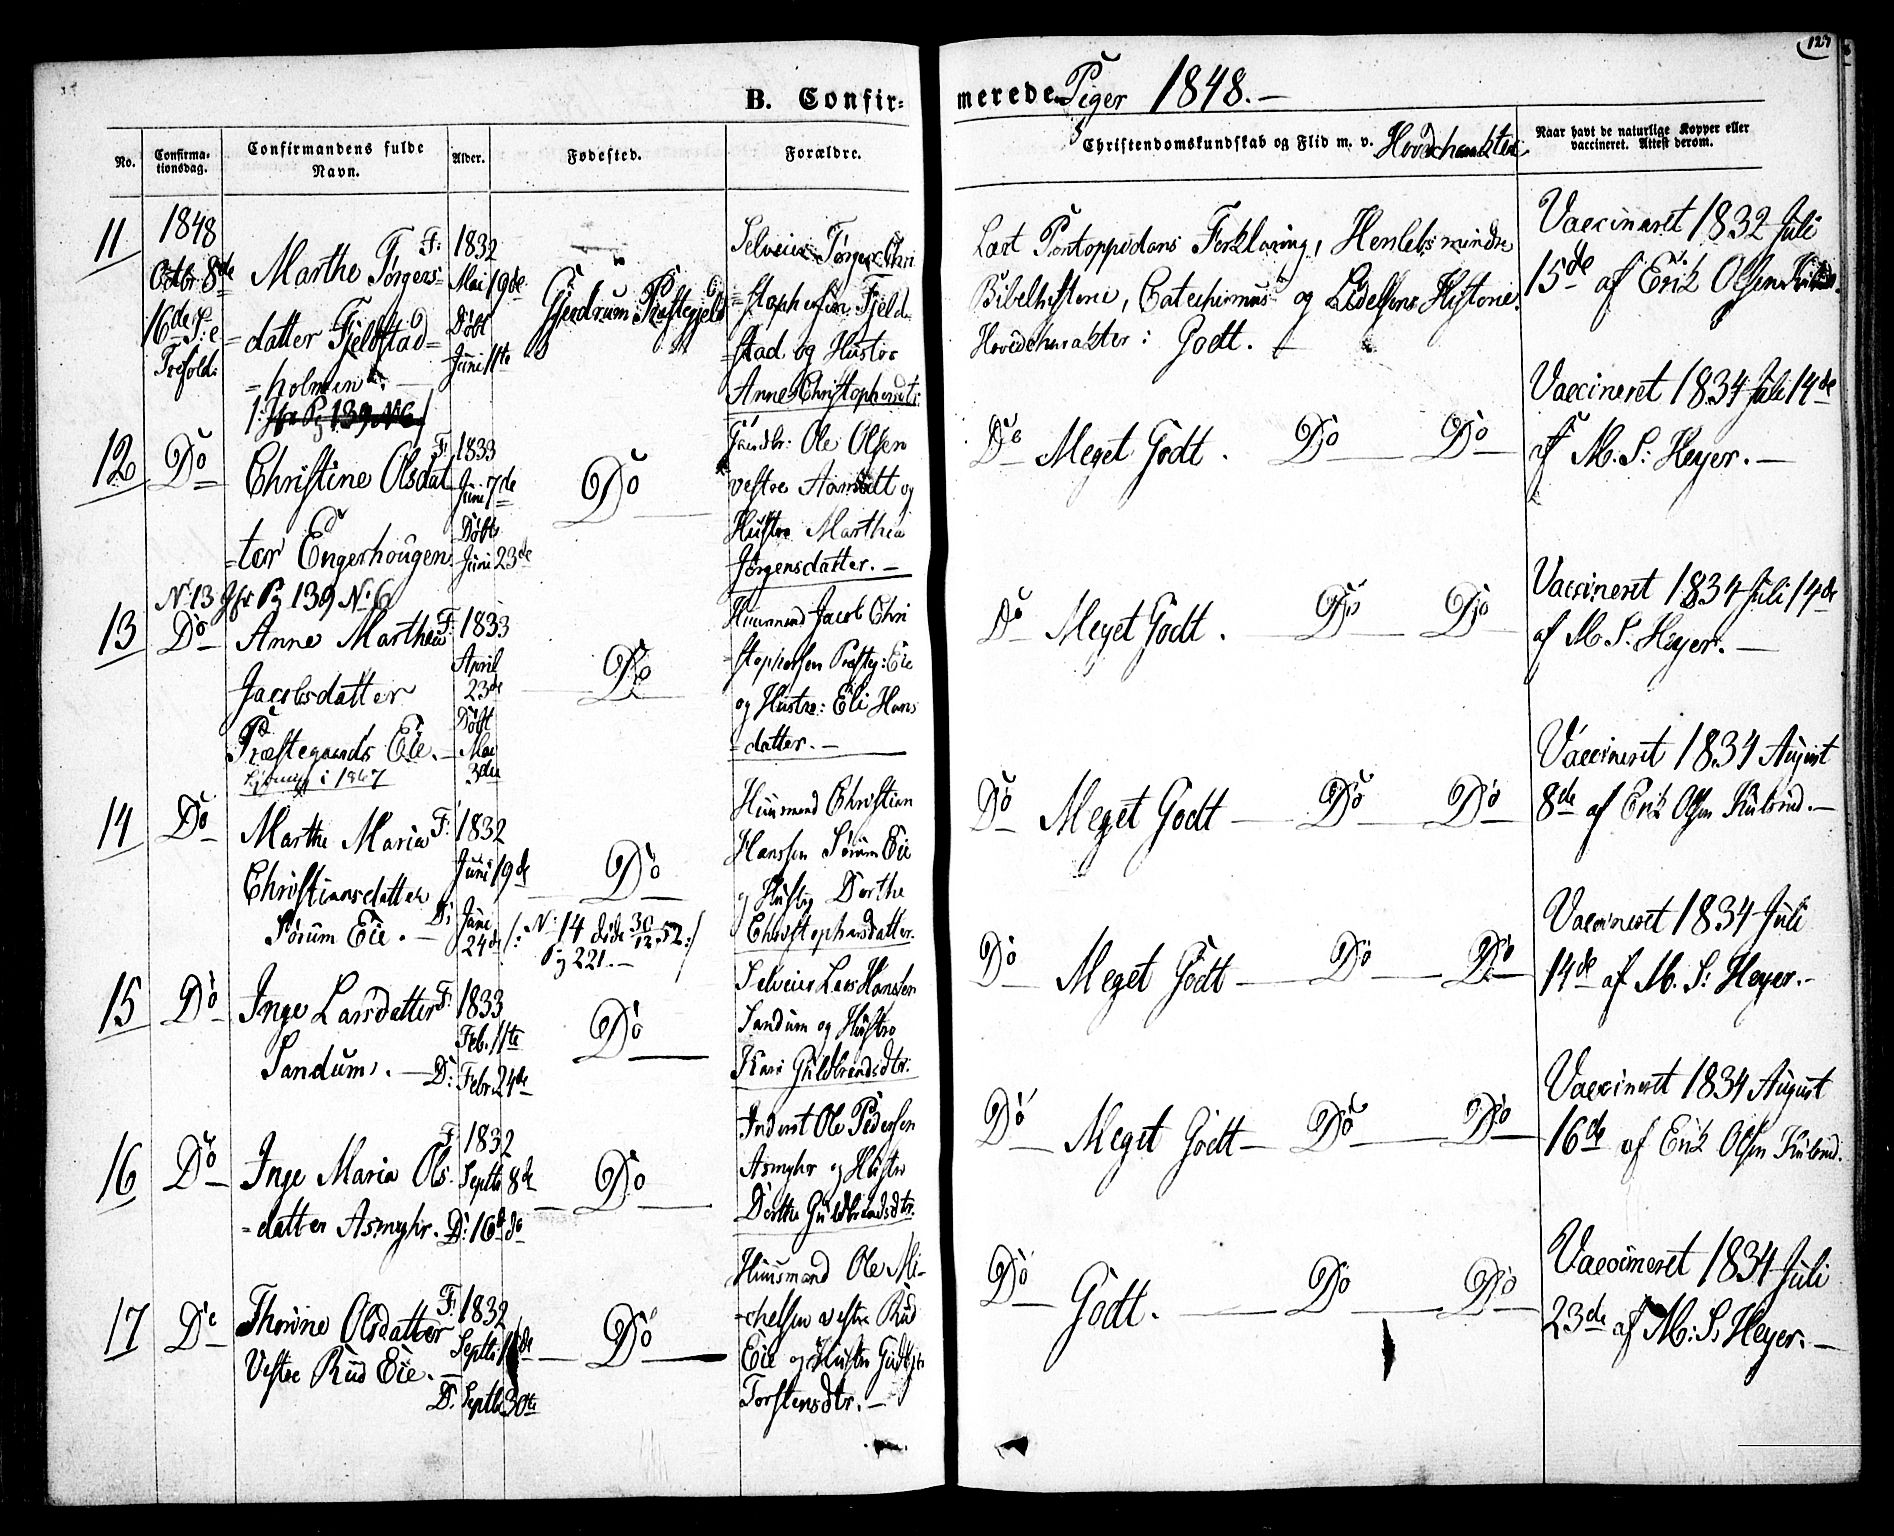 123
B. Confir- merede Piger 1848.-
No.
Confirma-
tionsdag.
Confirmandens fulde
Navn.
Alder.
Fødested.
Forældre.
Christendomskundskab og Flid m. v. Hovedcharakter
Naar havt de naturlige Kopper eller
vaccineret. Attest derom.
11
1848
Octbr 8de
16de S: e
Trefold:
Marthe Tørgers=
=datter Fjeldstad=
=holmen.
F: 1832
Mai 19de
Døbt
Juni 11te
Gjerdrum Præstegjeld
Selveier Tørger Chri
=stophersen Fjeld
=stad og Hustro
Anne Christophersdtr.
Læst Pontoppidans Forklaring, Henlets mindre
Bibelhistorie, Catechismus og Lidelsens Historie.
Hovedcharakter: Godt.
Vaccineret 1832 Juli
15de af Erik Olsen
/: Jfr Pg 139 N 6 /
12
Do
Christine Olsdat
=ter Engerhougen
F: 1833
Juni 7de
Døbt
Juni 23de
Do
Ole Olsen
vestre og
Hustro Marthea
Jørgensdatter.-
Do Meget Godt. Do Do
Vaccineret 1834 Juli 14de
af M. S: Heyer.-
N: 13 Jfr Pg 139 No 6
13
Do
Anne Marthea
Jacobsdatter
Præstegaards Eie.-
i 1867
F: 1833
April
23de
Døbt
Mai
3die
Do
Huusmand Jacob Chri
=stophersen Præstg: Eie
og Hustro: Eli Hans
=datter.-
Do Meget Godt. Do Do
Vaccineret 1834 Juli 14de
af M. S. Heyer.-
14
Do
Marthe Maria
Christiansdatter
Sørum Eie.-
F: 1832
Juni 19de
D: Juni
24de
Do
/: N: 14 døde 30/12 52 :/
Pg 221.-
Huusmand Christian
Hanssen Sørum Eie
og Dorthe
Christophersdatter.
Do Meget Godt Do Do
Vaccineret 1834 August
8de af Erik Olsen Kulsrud.-
15
Do
Inge Larsdatter
Sandum.-
F: 1833
Feb. 11te
D: Febr. 24de
Do
Selveier Lars Hansen
Sandum og Hustro
Kari Guldbrandsdtr.
Do Meget Godt Do Do
Vaccineret 1834 Juli
14de af M. S: Heyer.-
16
Do
Inge Maria Ols
=datter Asmyhr.
F: 1832
Septbr 8de
D: 16de do
Do
Inderst Ole Pedersen
Asmyhr og Hustro
Dorthe Guldbrandsdtr.
Do Meget Godt Do Do
Vaccineret 1834 August
16de af Erik Olsen Kulsrud.
17
Do
Thorine Olsdatter
Vestre Rud Eie.-
F: 1832
Septbr
D: Septbr 30te
Do
Huusmand Ole Mi-
-chelsen vestre Rud
Eie og Hustro
Torstensdtr.-
Do Godt. Do Do
Vaccineret 1834 Juli
23de af M: S: Heyer.-